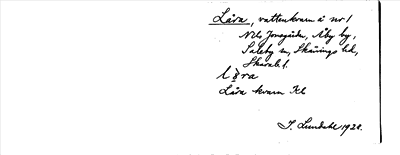 Låra, vattenkvarn å nr 1
Nils Jonsgården, Åby by,
Saleby sn, Skånings hd,
Skarab. l.
låra
Låra kvarn Kl
I. Lundahl 1928.